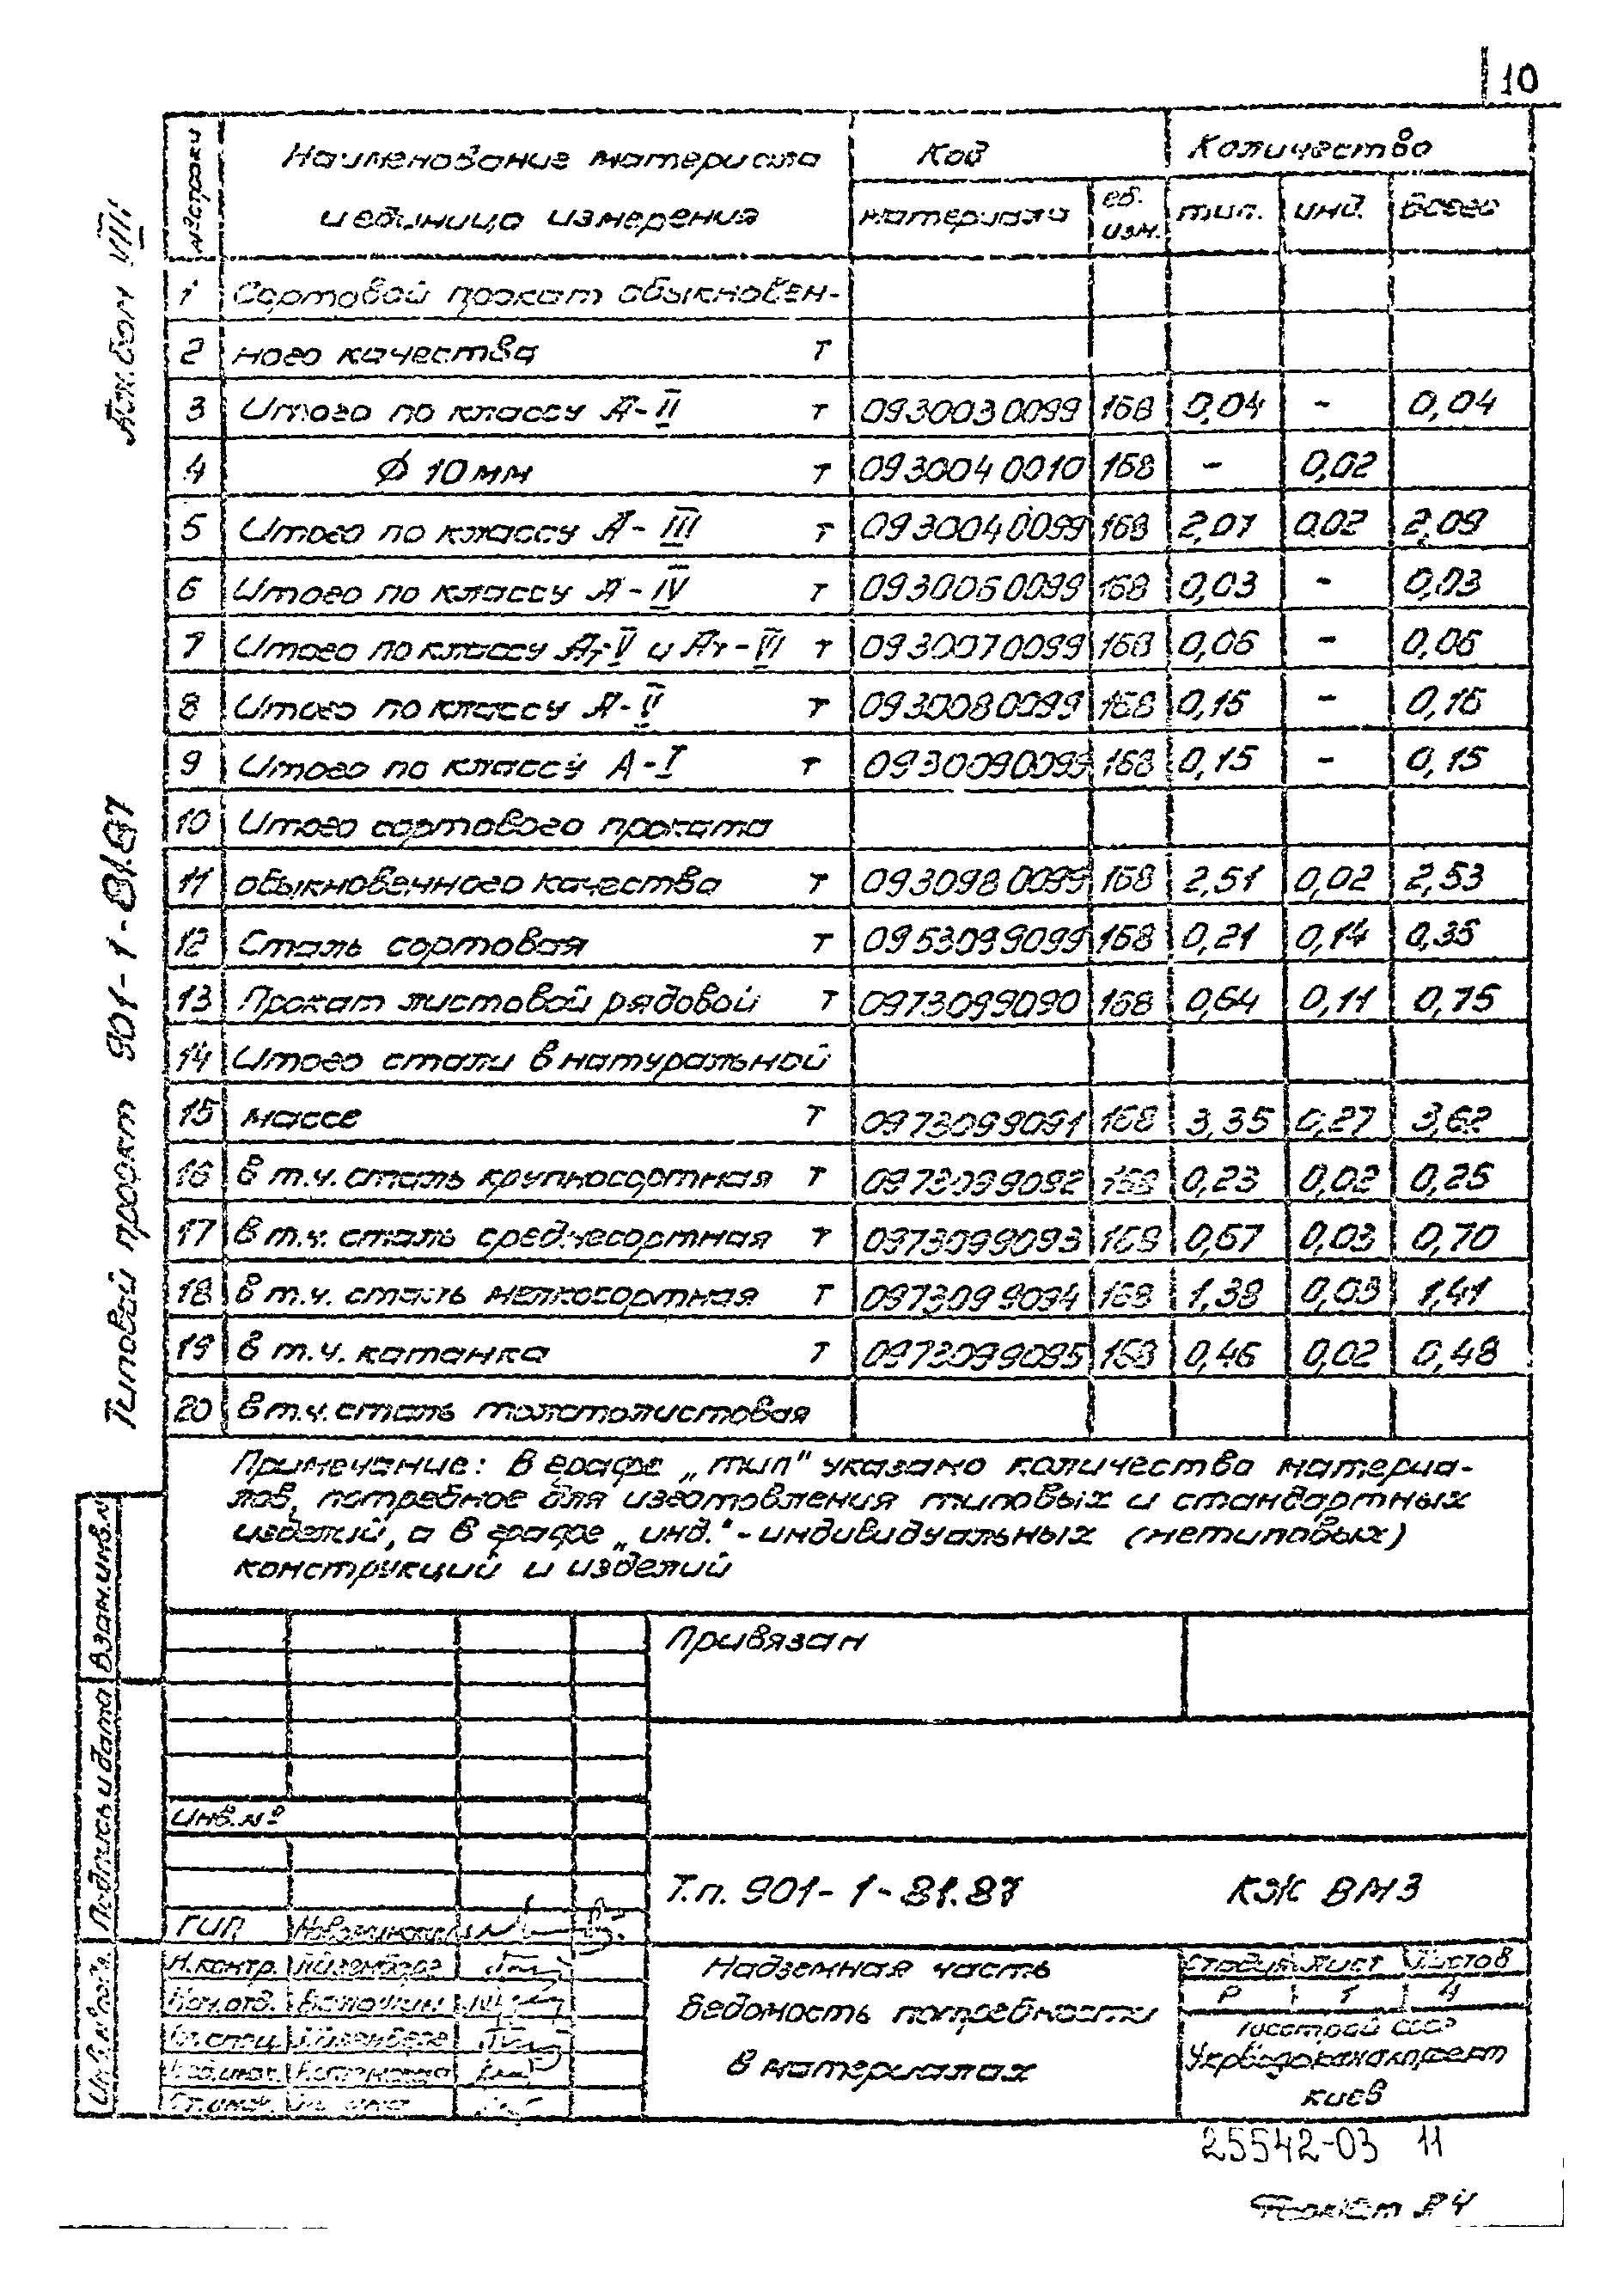 10
Альбом VIII
Типовой проект 901-1-81.87
№ строки | Наименование материала и единица измерения | Код | Количество
материала | ед. изм. | тип. | инд. | Всего
1 | Сортовой прокат обыкновен-
2 | ного качества т
3 | Итого по классу А-II т | 0930030099 | 168 | 0,04 | - | 0,04
4 | Ф 10мм т | 0930040010 | 168 | - | 0,02
5 | Итого по классу А-III т | 0930040099 | 168 | 2,07 | 0,02 | 2,09
6 | Итого по классу А-IV т | 0930060099 | 168 | 0,03 | - | 0,03
7 | Итого по классу Ат-V и Ат-III т | 0930070099 | 168 | 0,06 | - | 0,06
8 | Итого по классу А-V т | 0930080099 | 168 | 0,15 | - | 0,15
9 | Итого по классу А-I т | 0930090099 | 168 | 0,15 | - | 0,15
10 | Итого сортового проката
11 | обыкновенного качества т | 0930980099 | 168 | 2,51 | 0,02 | 2,53
12 | Сталь сортовая т | 0953099099 | 168 | 0,21 | 0,14 | 0,35
13 | Прокат листовой рядовой т | 0973099090 | 168 | 0,64 | 0,11 | 0,75
14 | Итого стали в натуральной
15 | массе т | 0973099091 | 168 | 3,35 | 0,27 | 3,62
16 | в т.ч. сталь крупносортная т | 0973099092 | 168 | 0,23 | 0,02 | 0,25
17 | в т.ч. сталь среднесортная т | 0973099093 | 168 | 0,67 | 0,03 | 0,70
18 | в т.ч. сталь мелкосортная т | 0973099094 | 168 | 1,38 | 0,03 | 1,41
19 | в т.ч. катанка т | 0973099095 | 168 | 0,46 | 0,02 | 0,48
20 | в т.ч. сталь толстолистовая
Примечание: В графе „тип" указано количество материа-
лов, потребное для изготовления типовых и стандартных
изделий, а в графе „инд."- индивидуальных (нетиповых)
конструкций и изделий
Взам.инв.№
Подпись и дата
Инв.№ подл.
Привязан
Инв.№
Т.п. 901-1-81.87 КЖ ВМ3
ГИП
Н.контр. Айзенберг
Нач.отд.
Гл.спец. Айзенберг
Вед.инж.
Ст.инж.
Надземная часть
Ведомость потребности
в материалах
Стадия | Лист | Листов
Р | 1 | 4
Госстрой СССР
Укрводоканалпроект
Киев
25542-03 11
Формат А4